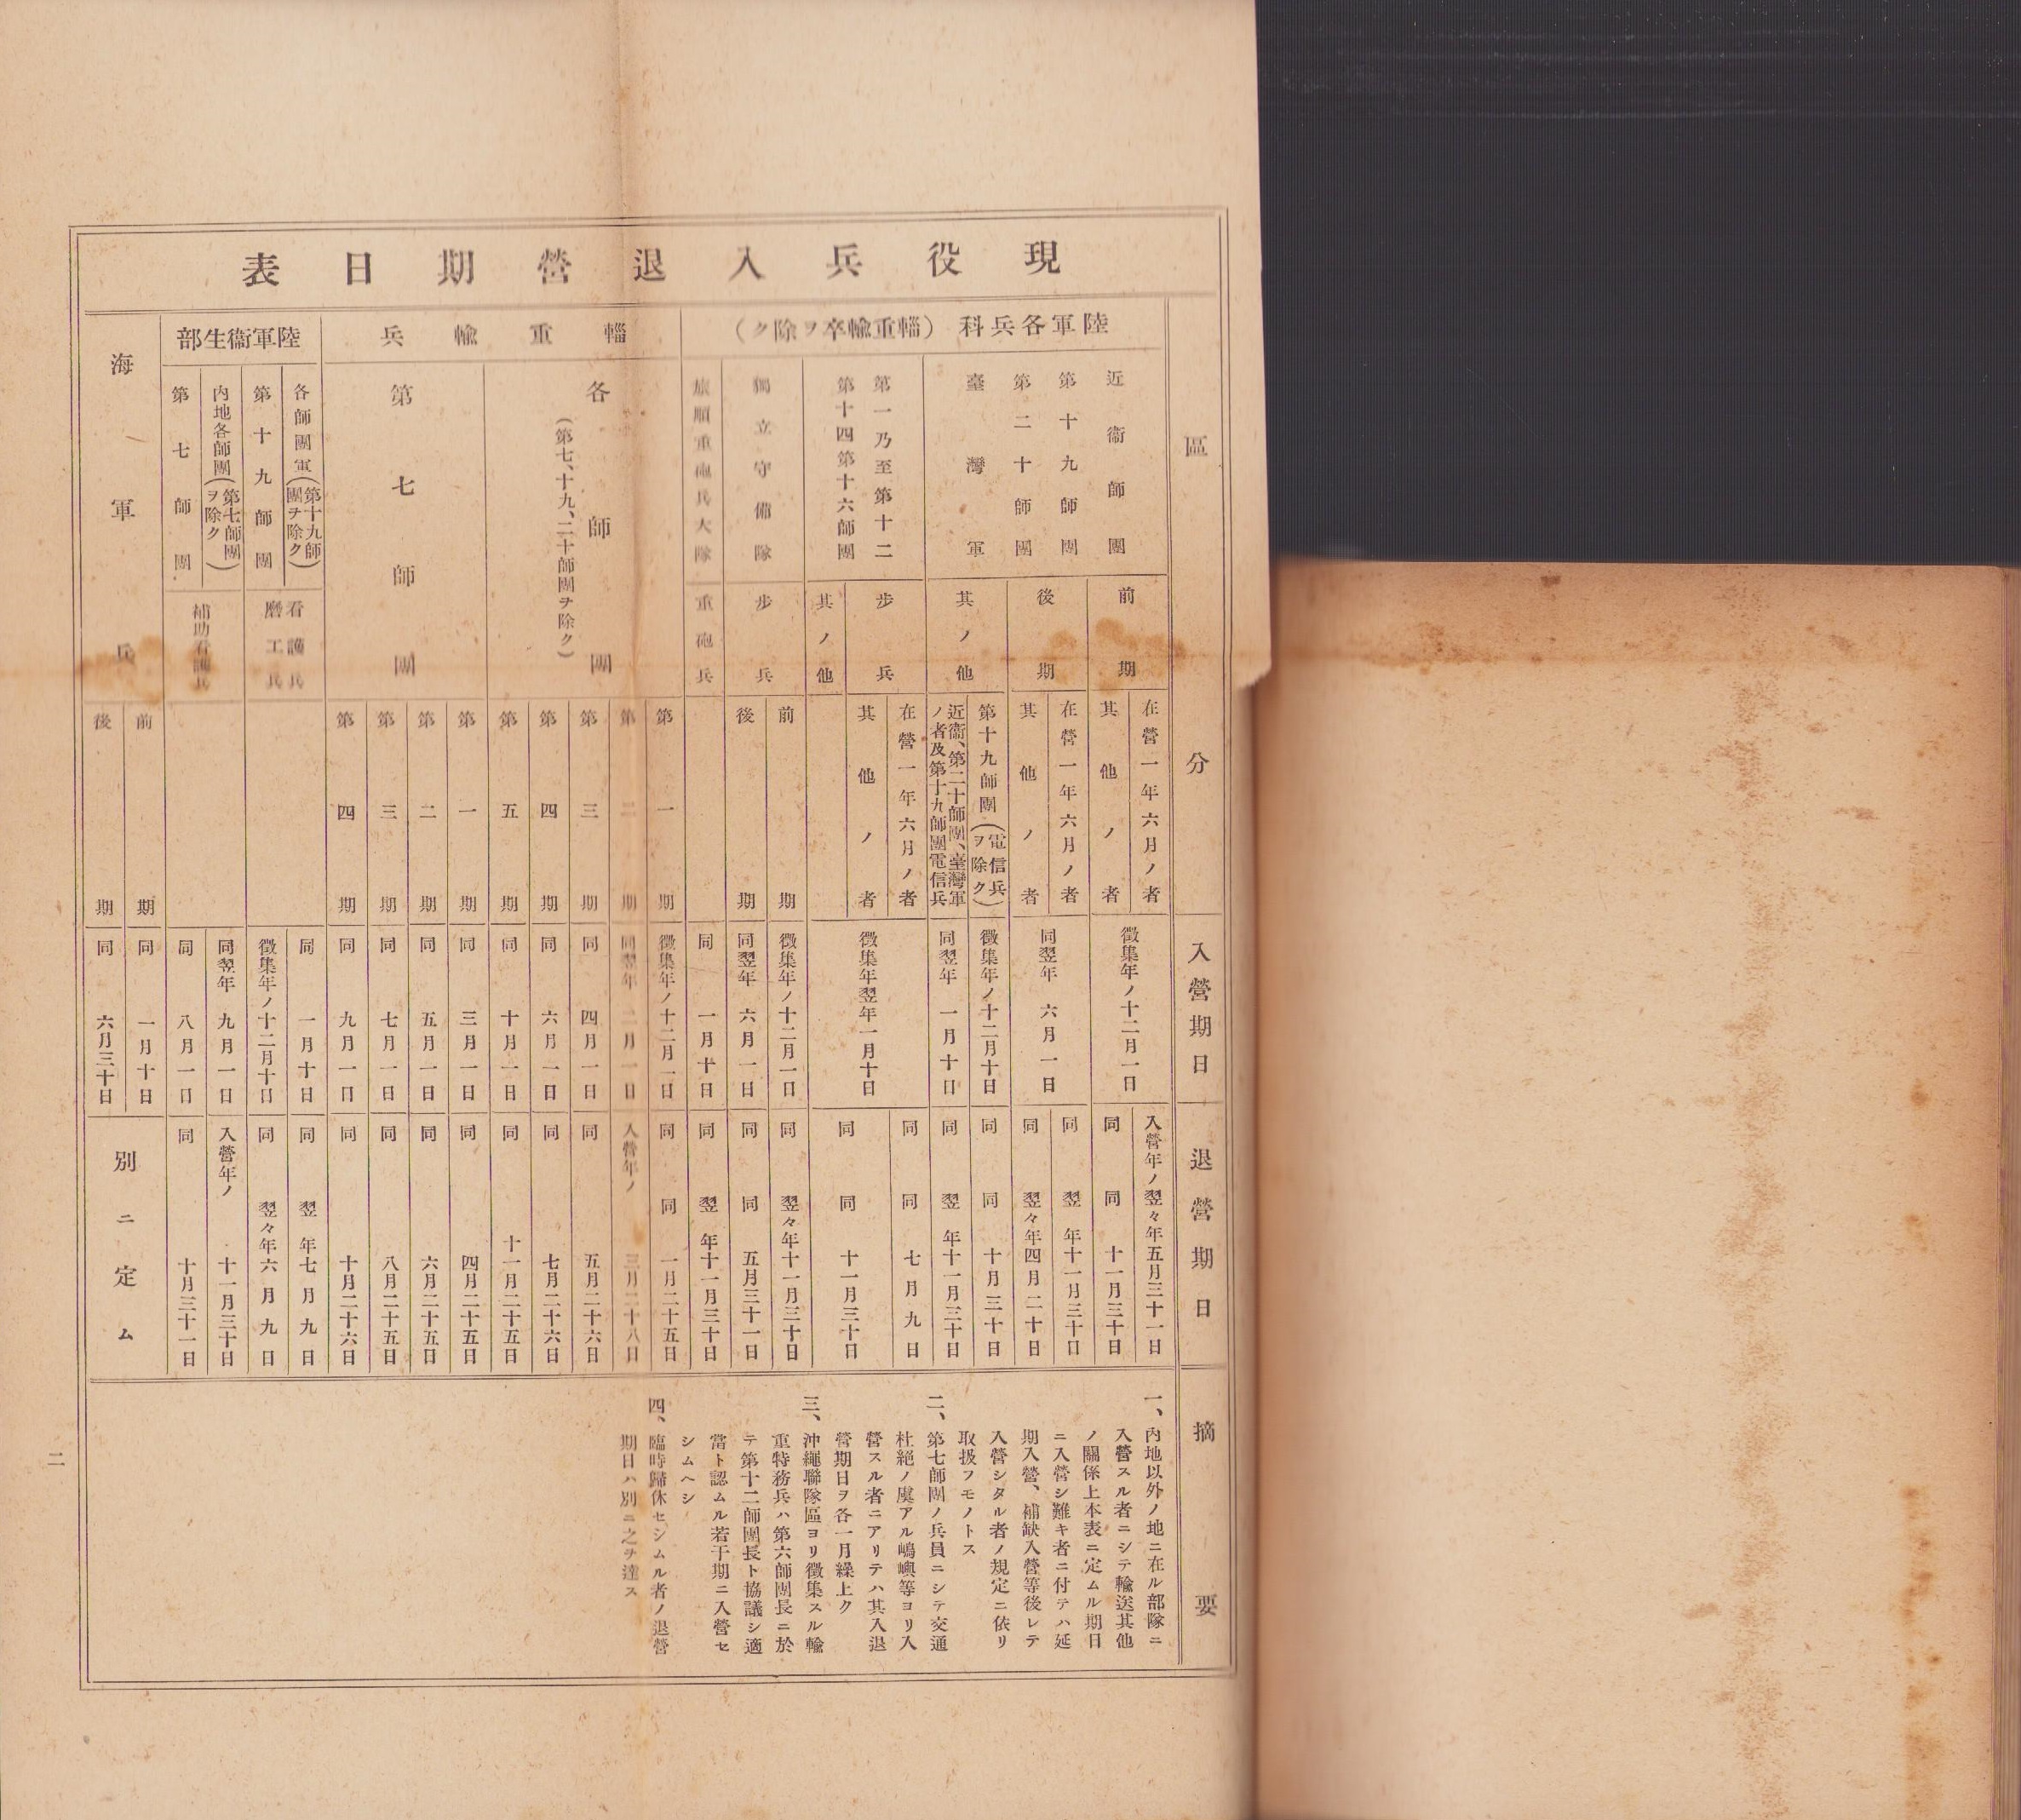 現役兵入退營期日表
區分
入營期日
退營期日
摘要
陸軍各兵科（輜重輸卒ヲ除ク）
近衞師團
第十九師團
第二十師團
臺灣軍
前期
在營一年六月ノ者
徵集年ノ十二月一日
入營年ノ翌々年五月三十一日
其他ノ者
同 同 十一月三十日
後期
在營一年六月ノ者
同翌年 六月一日
同 翌年十一月三十日
其他ノ者
同 翌々年四月二十日
其ノ他
第十九師團（電信兵ヲ除ク）
徵集年ノ十二月十日
同 同 十月三十日
近衞、第二十師團、臺灣軍ノ者及第十九師團電信兵
同翌年 一月十日
同 翌年十一月三十日
第一乃至第十二
第十四第十六師團
步兵
在營一年六月ノ者
徵集年翌年一月十日
同 同 七月九日
其他ノ者
同 同 十一月三十日
其ノ他
獨立守備隊
步兵
前期
徵集年ノ十二月一日
同 翌々年十一月三十日
後期
同翌年 六月一日
同 同 五月三十一日
旅順重砲兵大隊
重砲兵
同 一月十日
同 翌年十一月三十日
輜重輸兵
各師團
（第七、十九、二十師團ヲ除ク）
第一期
徵集年ノ十二月一日
同 同 一月二十五日
第二期
同翌年 二月一日
入營年ノ 三月二十八日
第三期
同 四月一日
同 五月二十六日
第四期
同 六月一日
同 七月二十六日
第五期
同 十月一日
同 十一月二十五日
第七師團
第一期
同 三月一日
同 四月二十五日
第二期
同 五月一日
同 六月二十五日
第三期
同 七月一日
同 八月二十五日
第四期
同 九月一日
同 十月二十六日
陸軍衞生部
各師團軍（第十九師團ヲ除ク）
看護兵
磨工兵
同 一月十日
同 翌年七月九日
第十九師團
徵集年ノ十二月十日
同 翌々年六月九日
內地各師團（第七師團ヲ除ク）
補助看護兵
同翌年 九月一日
入營年ノ 十一月三十日
第七師團
同 八月一日
同 十月三十一日
海軍兵
前期
同 一月十日
別ニ定ム
後期
同 六月三十日
一、內地以外ノ地ニ在ル部隊ニ
入營スル者ニシテ輸送其他
ノ關係上本表ニ定ムル期日
ニ入營シ難キ者ニ付テハ延
期入營、補缺入營等後レテ
入營シタル者ノ規定ニ依リ
取扱フモノトス
二、第七師團ノ兵員ニシテ交通
杜絕ノ虞アル嶋嶼等ヨリ入
營スル者ニアリテハ其入退
營期日ヲ各一月繰上ク
三、沖繩聯隊區ヨリ徵集スル輸
重特務兵ハ第六師團長ニ於
テ第十二師團長ト協議シ適
當ト認ムル若干期ニ入營セ
シムヘシ
四、臨時歸休セシムル者ノ退營
期日ハ別ニ之ヲ達ス
二